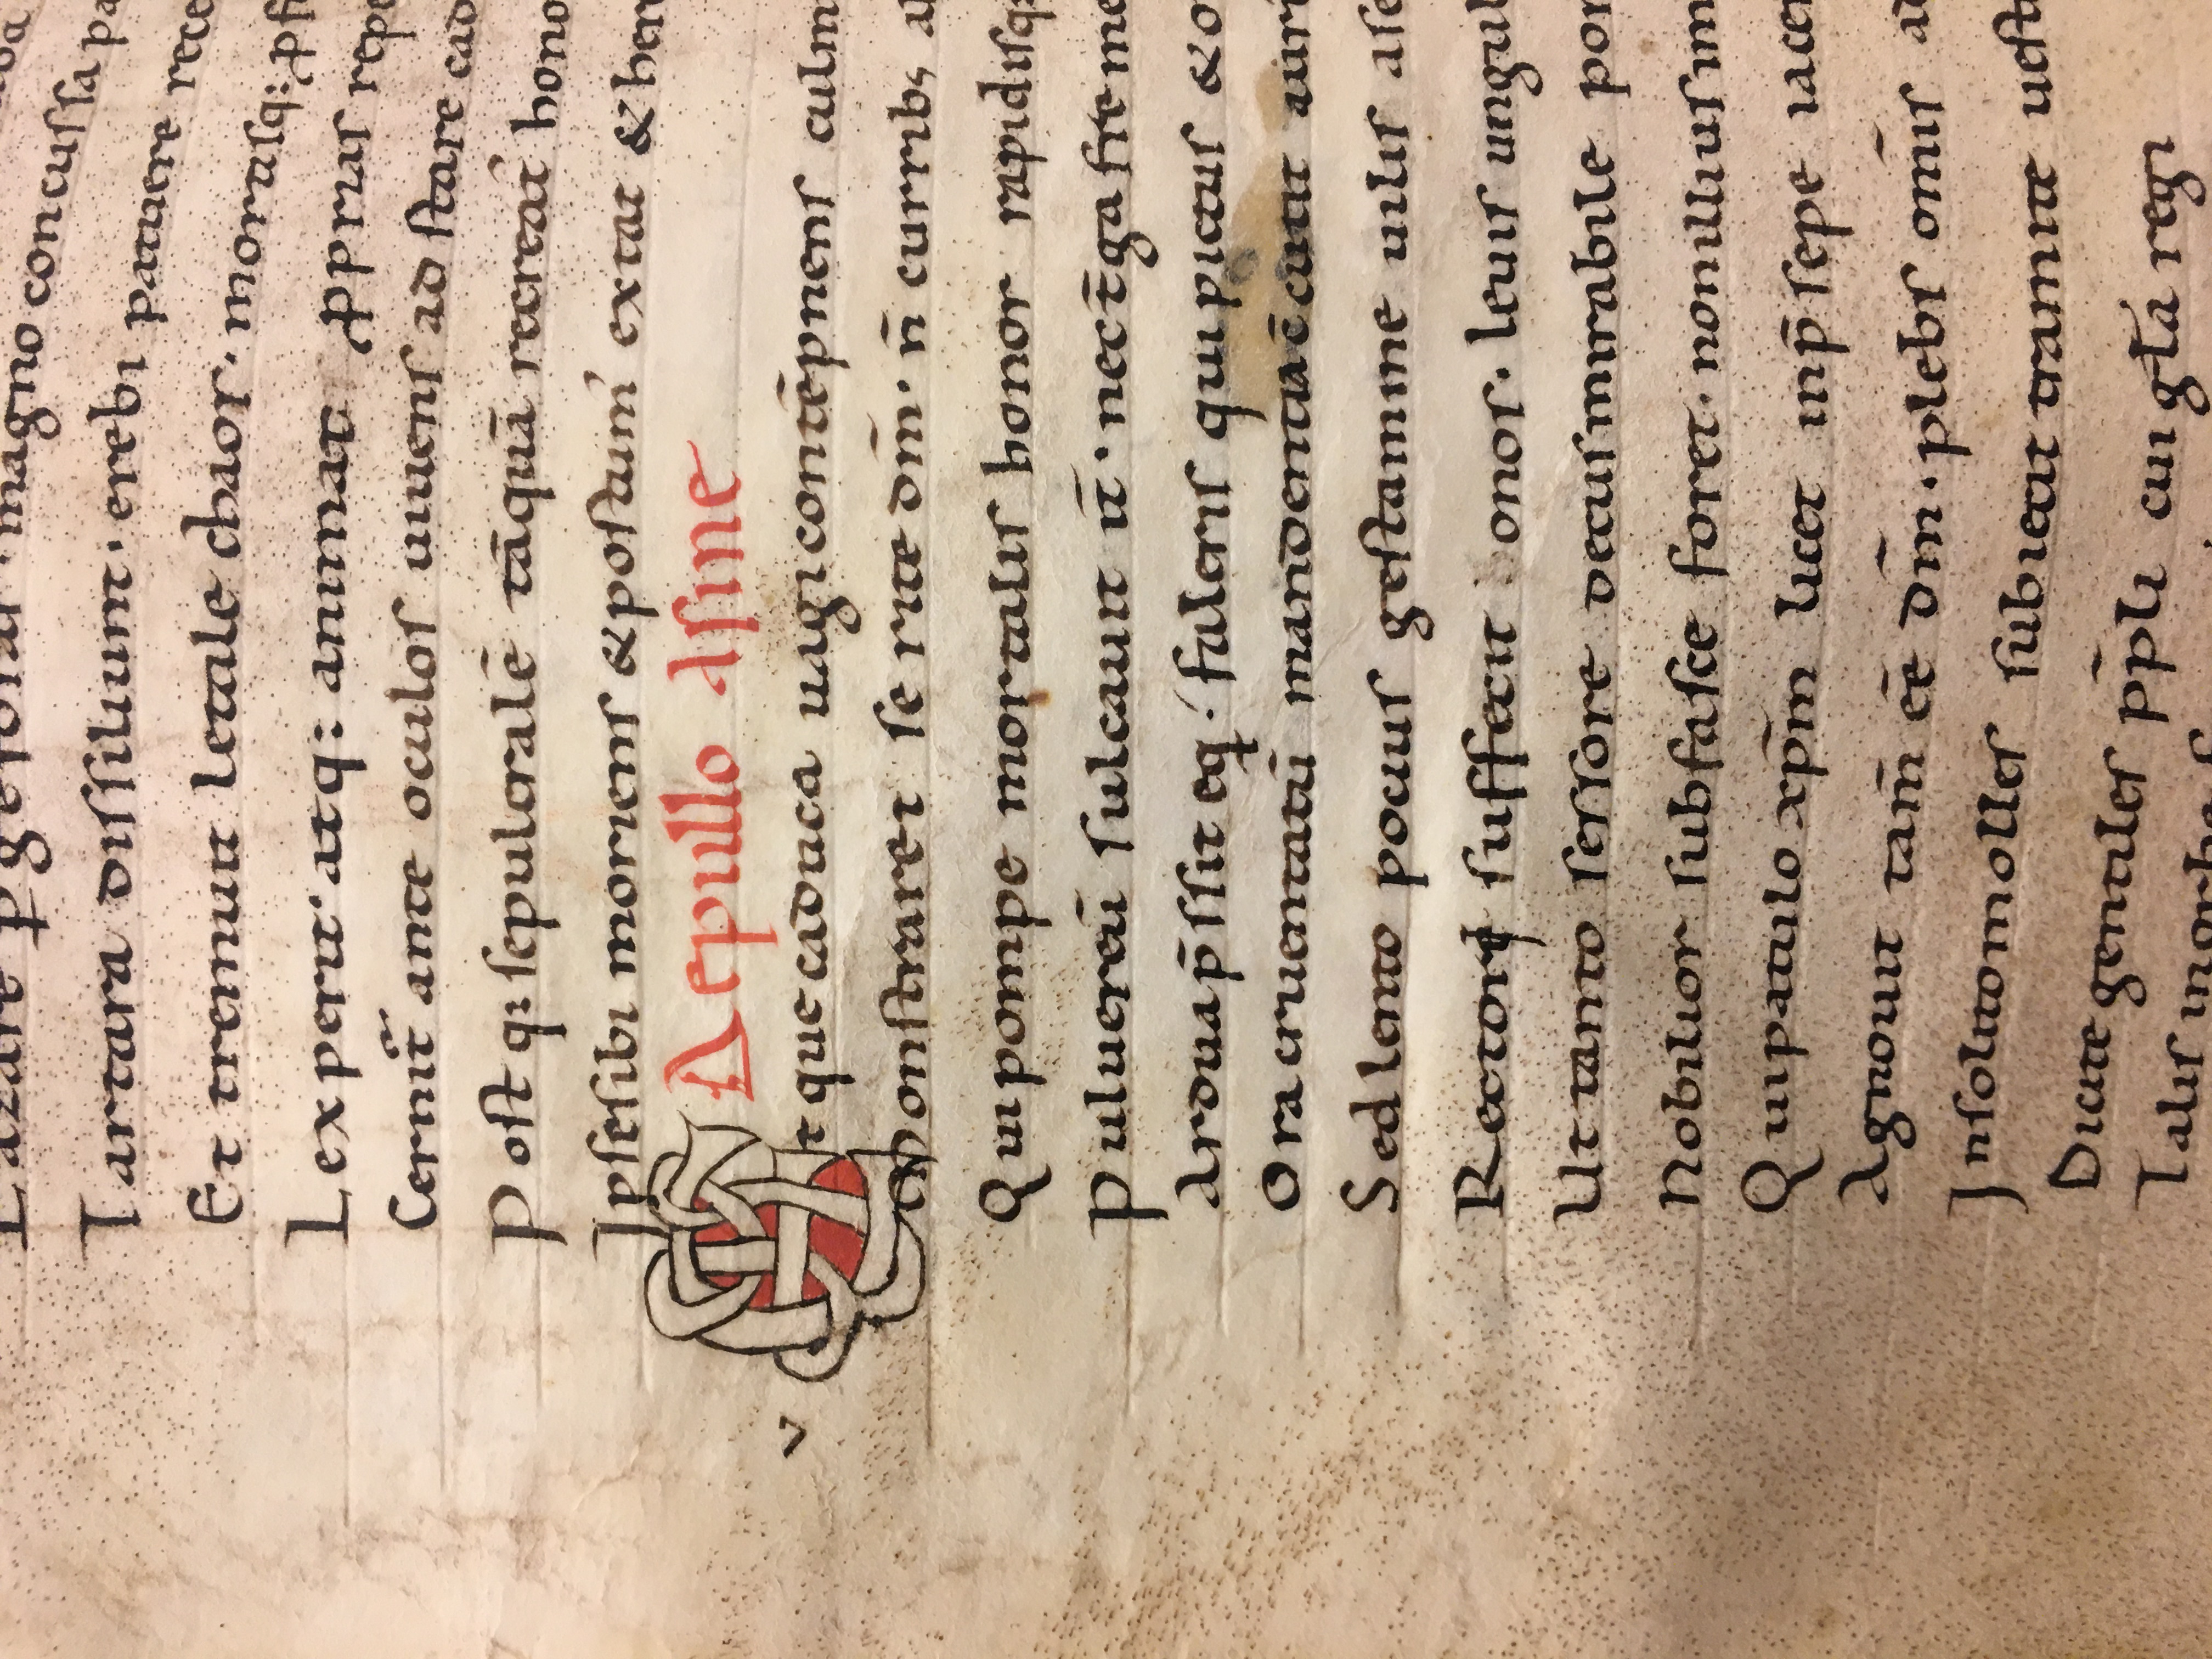 Lazare ꝑge foras. magno concussa pa
Tartara dissiliunt. erebi patuere rece
Et tremuit letale chaos. mortisq: ꝓfu
Lex perit' atq: animae ꝓprias repe
Cernit̄ ante oculos uiuens ad stare cad
Post q: sepulcralē tāquā recreat' hono
Ipse sibi moriens & postum' extat & here
De pullo asine
V
Ut que caduca uagi contēpnens culm
Monstraret se rite dm̄. n̄ curribꝫ al
Qui pompe mortalis honor rapidisq:
Puluereū sulcauit it̄. nec t̄ga freme
Ardua p̄ssit eq. faleris qui pictus & o
Ora cruentatū mandentia cc̄utit auru
Sed lento potius gestamine uilis ase
Rectoris suffecit onos. leuis ungul
Ut tanto sessore decus mirabile por
Nobilior sub fasce foret. non illius im
Qui patulo xp̄m licet in p̄sepe iacen
Agnouit tam̄ ēe dm̄. plebs om̄is ad
Insolito molles subiecit tramite uest
Dicite gentiles pp̄li cui gl̄a regi
Talis in orbe